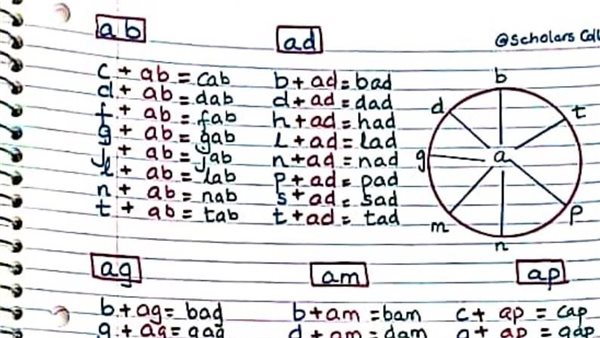 ab
c + ab = cab
d + ab = dab
f + ab = fab
g + ab = gab
j + ab = jab
l + ab = lab
n + ab = nab
t + ab = tab
ad
b + ad = bad
d + ad = dad
h + ad = had
l + ad = lad
n + ad = nad
p + ad = pad
s + ad = sad
t + ad = tad
@Scholars
b
d
t
g
a
m
p
n
ag
b + ag = bag
g + ag = gag
am
b + am = bam
d + am = dam
ap
c + ap = cap
g + ap = gap